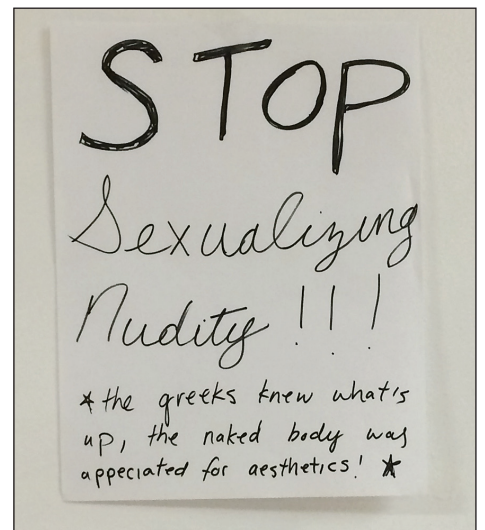 STOP
Sexualizing
Nudity !!!
* the greeks knew what's
up, the naked body was
appeciated for aesthetics! ★